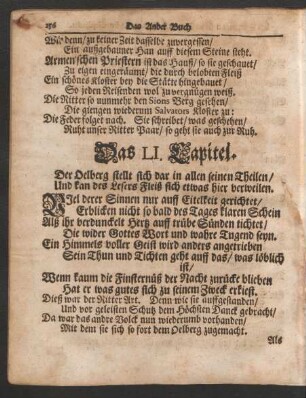 256 Das Ander Buch
Wie denn/ zu keiner Zeit dasselbe zuvergessen/
Ein auffgebauner Han auff diesem Steine steht.
Armen'schen Priestern ist das Hauß/ so sie geschauet/
Zu eigen eingeräumt/ die durch belobten Fleiß
Ein schönes Kloster bey die Stätte hingebauet/
So jeden Reisenden wol zu vergnügen weiß.
Die Ritter so nunmehr den Sions Berg gesehen/
Die giengen wiederum Salvators Kloster zu:
Die Feder folget nach. Sie schreibet/ was geschehen/
Ruht unser Ritter Paar/ so geht sie auch zur Ruh.
Das LI. Capitel.
Der Oelberg stellt sich dar in allen seinen Theilen/
Und kan des Lesers Fleiß sich etwas hier verweilen.
Viel derer Sinnen nur auff Eitelkeit gerichtet/
Erblicken nicht so bald des Tages klaren Schein
Alß ihr verdunckelt Hertz auff trübe Sünden tichtet/
Die wider Gottes Wort und wahre Tugend seyn.
Ein Himmels voller Geist wird anders angetrieben
Sein Thun und Tichten geht auff das/ was löblich
ist/
Wenn kaum die Finsternüß der Nacht zurücke blieben
Hat er was gutes sich zu seinem Zweck erkiest.
Dieß war der Ritter Art. Denn wie sie auffgestanden/
Und vor geleisten Schutz dem Höchsten Danck gebracht/
Da war das andre Volck nun wiederumb vorhanden/
Mit dem sie sich so fort dem Oelberg zugemacht.
Als